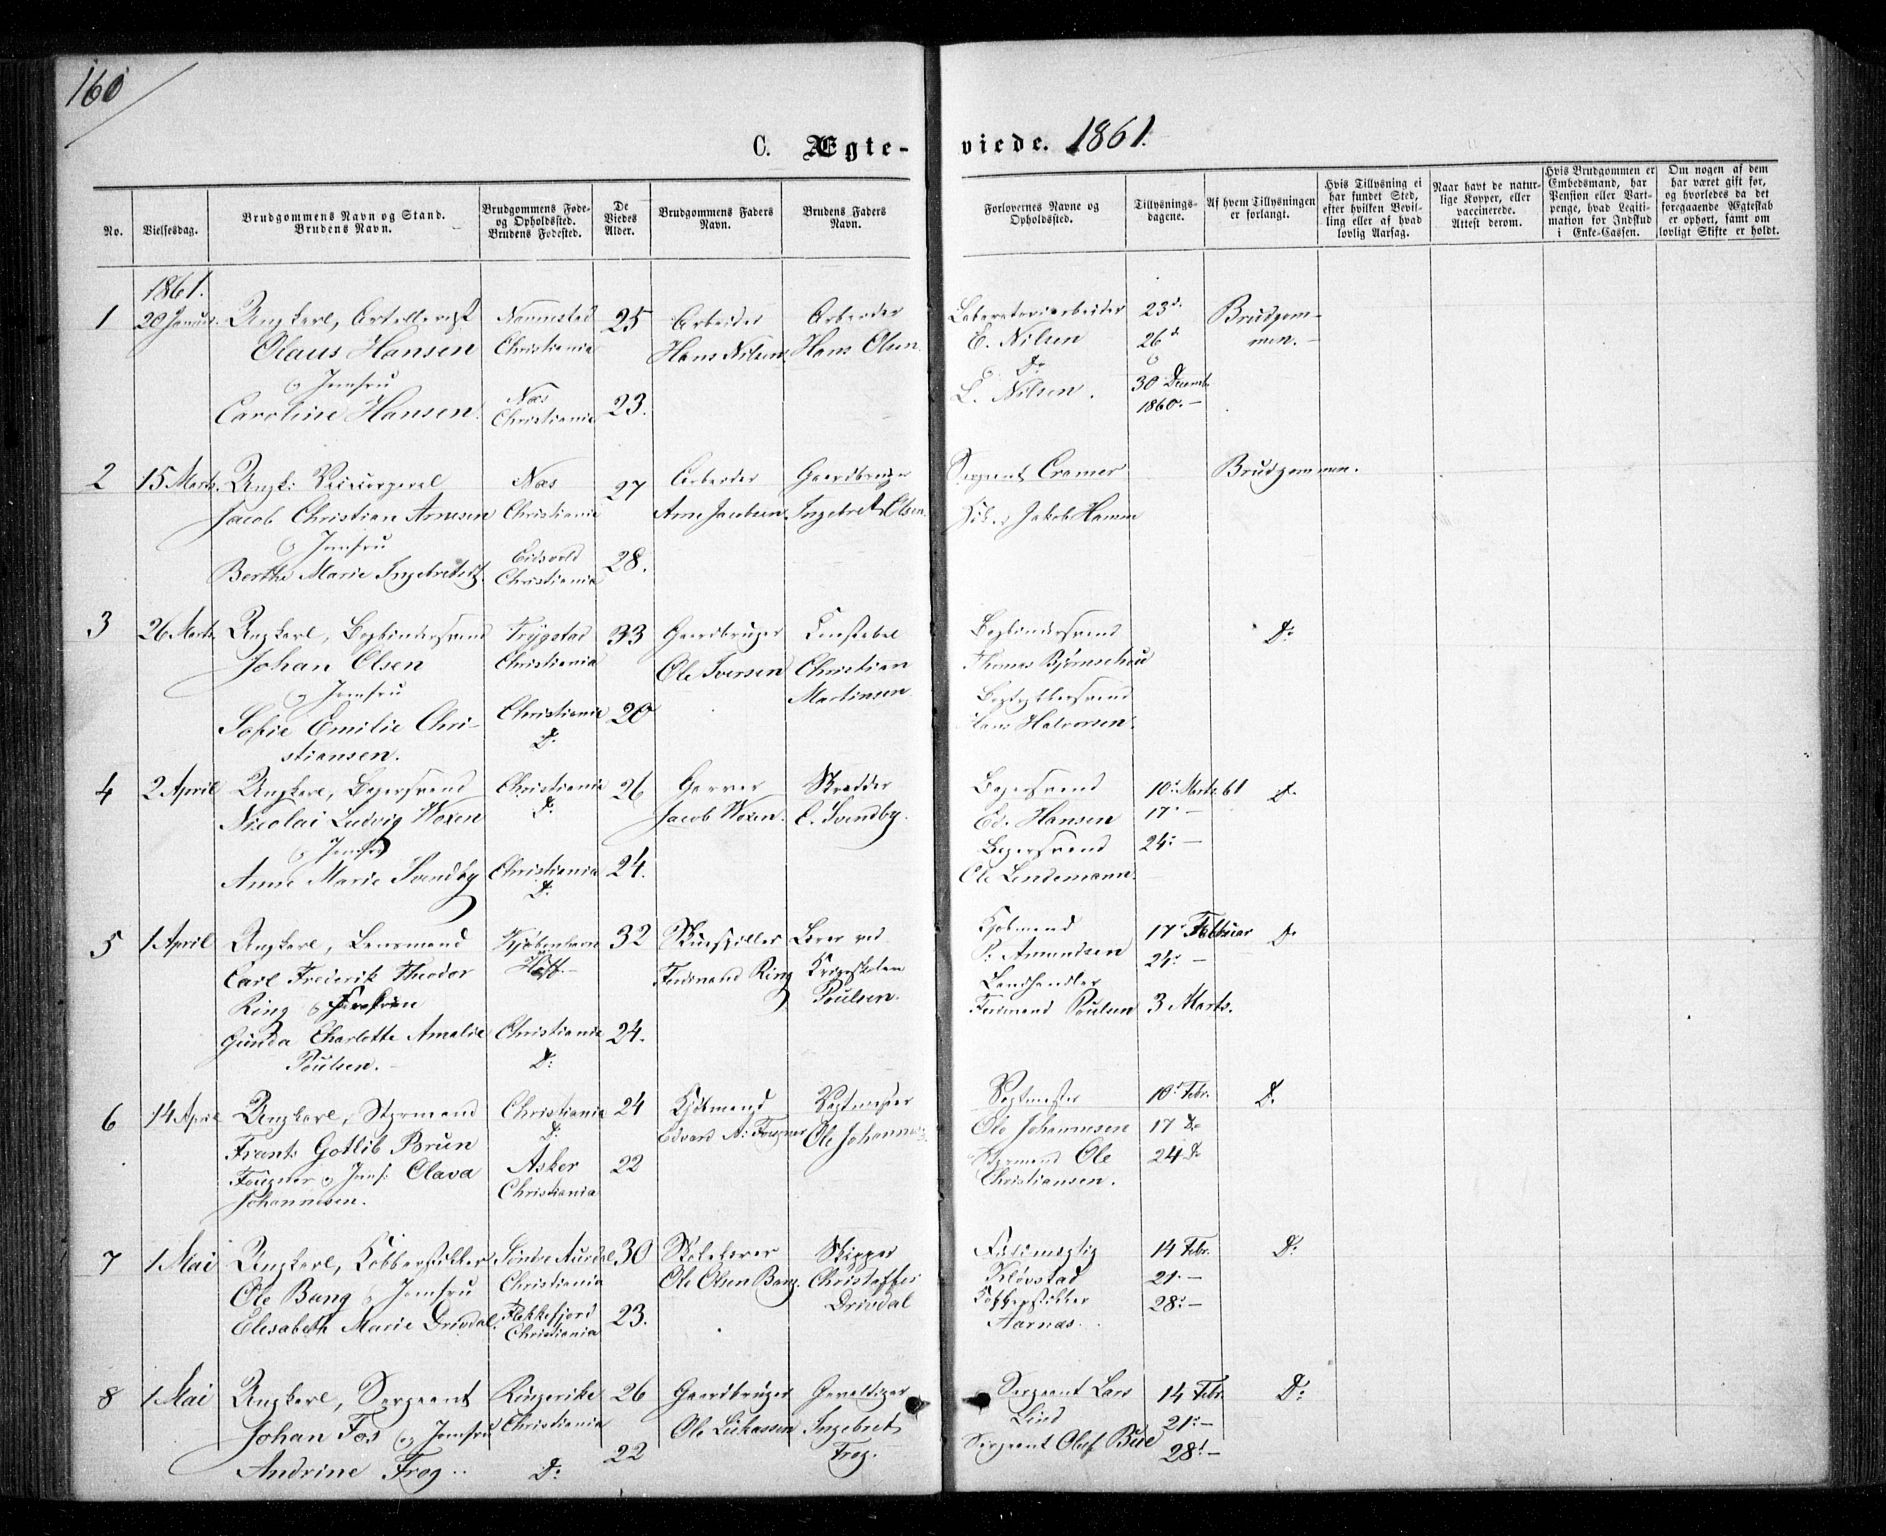 160
C. Ægte-
viede. 1861.
No.
Vielsesdag.
Brudgommens Navn og Stand.
Brudens Navn.
Brudgommens Føde-
og Opholdssted.
Brudens Fødested.
De
Viedes
Alder.
Brudgommens Faders
Navn.
Brudens Faders
Navn.
Forlovernes Navne og
Opholdssted.
Tillysnings-
dagene.
Af hvem Tillysningen
er forlangt.
Hvis Tillysning ei
har fundet Sted,
efter hvilken Bevil-
ling eller af hvad
lovlig Aarsag.
Naar havt de natur-
lige Kopper, eller
vaccinerede.
Attest derom.
Hvis Brudgommen er
Embedsmand, har
Pension eller Vart-
penge, hvad Legiti-
mation for Indskud
i Enke-Cassen.
Om nogen af dem
har været gift før,
og hvorledes da det
foregaaende Ægteskab
er ophørt, samt om
lovligt Skifte er holdt.
1861.
1 20 Januar. Ungkarl, Artillerist
Olaus Hansen
og Jomfru
Caroline Hansen.
Nannestad
Christiania
Næs
Christiania
25
23.
Arbeider
Hans Nilsen
Arbeider
Hans Olsen.
Laboratoriearbeider
E. Nilsen
og Do
L. Nilsen.
23d.
26d
og
30 Decemb.
1860.-
Brudgom-
men.-
2 15 Marts. Ungk:
Jacob Christian Arnesen
og Jomfru
Berthe Marie Ingebretsd.
Næs
Christiania
Eidsvold
Christiania
27
28.
Arbeider
Arne Jacobsen
Gaardbruger
Ingebret Olsen.
Sergeant Cramer
Jakob Hamm
Brudgommen.
3 26 Marts. Ungkarl, Bogbindersvend
Johan Olsen
og Jomfru
Sofie Emilie Chri-
stiansen.
Trygstad
Christiania
Christiania
Do
33
20
Gaardbruger
Ole Iversen
Constabel
Christian
Martinsen
Bogbindersvend
Thomas
Bogtrykkersvend
Hans Halvorsen.
Do
4 2 April Ungkarl, Bagersvend
Nicolai Ludvig Woxen
og Jomfru
Anne Marie Svendby
Christiania
Do
Christiania
Do
26
24.
Garver
Jacob Woxen.
Skrædder
E. Svendby.
Bagersvend
Ed. Hansen
Bagersvend
Ole Lindemann.
10d Marts 61
17d -
24d -
Do
5 1 April Ungkarl, Lensmand
Carl Frederik Theodor
Ring og Frøken
Gunda Charlotte Amalie
Poulsen.
Kjøbenhavn
Hoff.-
Christiania
Do
32
24.
Skuespiller
Ferdinand Ring
Lærer ved
Krigsskolen
Poulsen.
Kjøbmand
P. Amundsen
Landhandler
Ferdinand Poulsen
17d Februar
24d -
3 Marts.
Do
6 14 April Ungkarl, Styrmand
Frants Gotlib Brun
Fougner og Jomf: Olava
Johannesen.
Christiania
Do
Asker
Christiania
24
22
Kjøbmand
Edvard A: Fougner
Vagtmester
Ole Johannes.
Vagtmester
Ole Johannesen
Styrmand Ole
Christiansen.
10d Febr.
17 Do
24 Do
Do
7 1 Mai Ungkarl, Kobberstikker
Ole Bang og Jomfru
Elisabeth Marie Drivdal.
Søndre Aurdal
Christiania
Flekkefjord
Christiania
30
23.
Skolelærer
Ole Olsen Bang.
Skipper
Christoffer
Drivdal
Fuldmægtig
Kløvstad
Kobberstikker
Aarnæs.
14 Febr.
21.-
28d-
Do
8 1 Mai Ungkarl, Sergeant
Johan Fos og Jomfru
Andrine Frog.
Ringerike
Christiania
Do
26
22
Gaardbruger
Ole Lukassen
Gevaltiger
Ingebret
Frog.
Sergeant Lars
Lind
Sergeant Oluf Bue
14 Febr.
21d-
28d-
Do